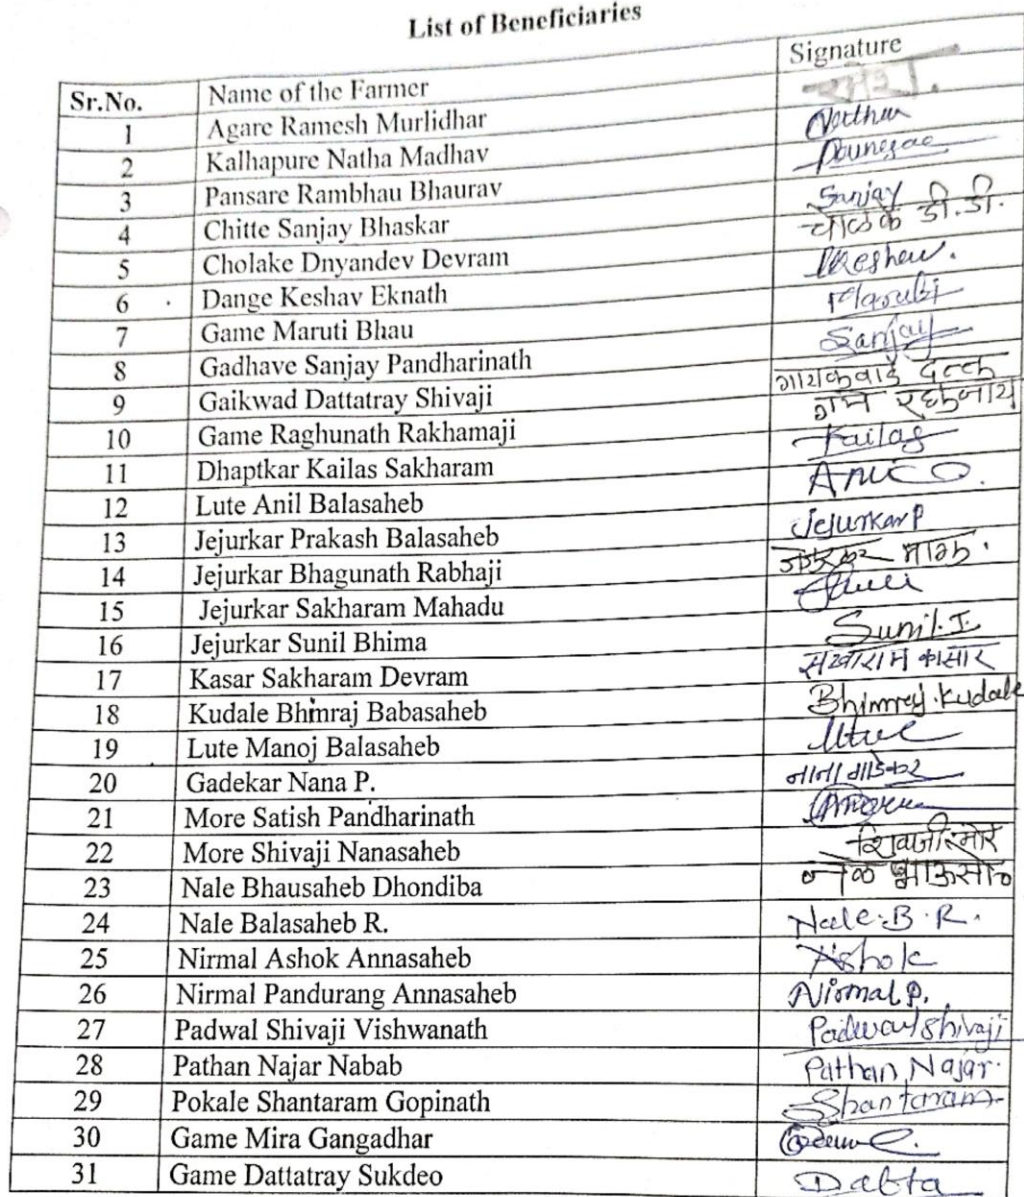 List of Beneficiaries
Sr.No. Name of the Farmer Signature
1 Agare Ramesh Murlidhar
2 Kalhapure Natha Madhav
3 Pansare Rambhau Bhaurav
4 Chitte Sanjay Bhaskar Sanjay
5 Cholake Dnyandev Devram चोळके डी.डी.
6 Dange Keshav Eknath Keshav.
7 Game Maruti Bhau Maruti
8 Gadhave Sanjay Pandharinath Sanjay
9 Gaikwad Dattatray Shivaji गायकवाड दत्तु
10 Game Raghunath Rakhamaji गमे रघुनाथ
11 Dhaptkar Kailas Sakharam Kailas
12 Lute Anil Balasaheb
13 Jejurkar Prakash Balasaheb Jejurkar P
14 Jejurkar Bhagunath Rabhaji
15 Jejurkar Sakharam Mahadu
16 Jejurkar Sunil Bhima Sunil.J.
17 Kasar Sakharam Devram सखाराम कासार
18 Kudale Bhimraj Babasaheb Bhimraj.Kudale
19 Lute Manoj Balasaheb
20 Gadekar Nana P. नाना गाडेकर
21 More Satish Pandharinath
22 More Shivaji Nanasaheb शिवाजी मोरे
23 Nale Bhausaheb Dhondiba
24 Nale Balasaheb R. Nale.B.R.
25 Nirmal Ashok Annasaheb Ashok
26 Nirmal Pandurang Annasaheb Nirmal P.
27 Padwal Shivaji Vishwanath Padwal Shivaji
28 Pathan Najar Nabab Pathan Najar.
29 Pokale Shantaram Gopinath Shantaram
30 Game Mira Gangadhar
31 Game Dattatray Sukdeo Datta